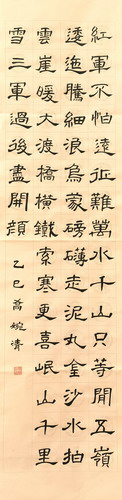 紅軍不怕遠征難萬水千山只等閒五嶺
逶迤騰細浪烏蒙磅礴走泥丸金沙水拍
雲崖暖大渡橋橫鐵索寒更喜岷山千里
雪三軍過後盡開顏
乙巳婉清